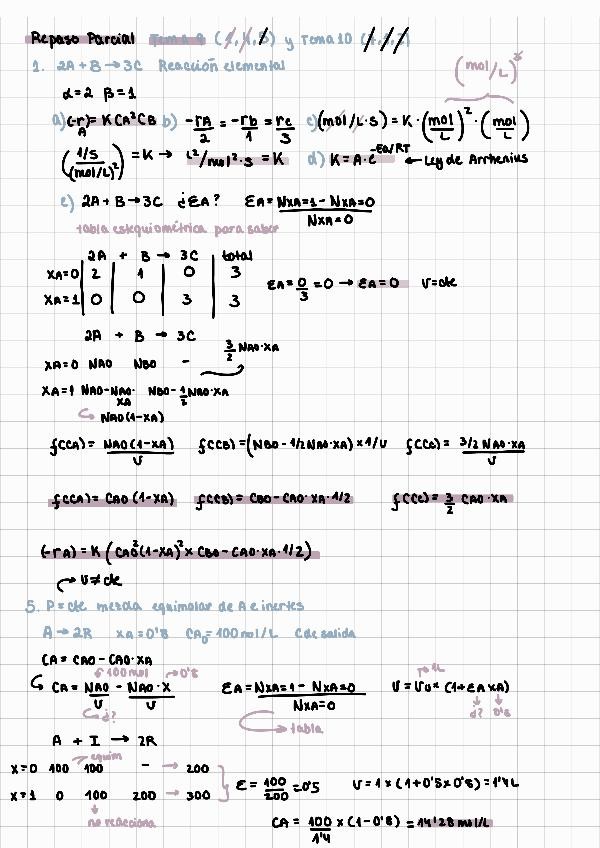 Repaso Parcial Tema 9 (1,4,5) y Tema 10
1. 2A + B → 3C Reacción elemental
(mol/L)³
α=2 β=1
a) (-r)A = K CA² CB b) -rA/2 = -rb/1 = rc/3 c) (mol/L·s) = K · (mol/L)² · (mol/L)
(1/s/(mol/L)²) = K → L²/mol²·s = K d) K = A·e^-Ea/RT ← Ley de Arrhenius
e) 2A + B → 3C ¿εA? εA = NXA=1 - NXA=0/NXA=0
tabla estequiométrica para saber
2A + B → 3C total
XA=0 2 1 0 3
XA=1 0 0 3 3
εA = 0/3 = 0 → εA=0 V=cte
2A + B → 3C
XA=0 NA0 NB0 -
3/2 NA0·XA
XA=1 NA0-NA0·XA NB0-1/2NA0·XA
NA0(1-XA)
f(CA) = NA0(1-XA)/V f(CB) = (NB0-1/2NA0·XA)×1/V f(CC) = 3/2 NA0·XA/V
f(CA) = CA0(1-XA) f(CB) = CB0-CA0·XA·1/2 f(CC) = 3/2 CA0·XA
(-rA) = K (CA0²(1-XA)² × CB0-CA0·XA·1/2)
V≠cte
5. P=cte mezcla equimolar de A e inertes
A → 2R XA=0'8 CA0=100mol/L C de salida
CA = CA0-CA0·XA
100mol →0'8 1L
CA = NA0/V - NA0·X/V εA = NXA=1 - NXA=0/NXA=0 V=V0×(1+εA×XA)
¿? ¿? 0'8
tabla
A + I → 2R
equim
X=0 100 100 - → 200
X=1 0 100 200 → 300
ε = 100/200 = 0'5 V=1×(1+0'5×0'8)=1'4L
no reacciona
CA = 100/1'4 × (1-0'8) = 14'28 mol/L